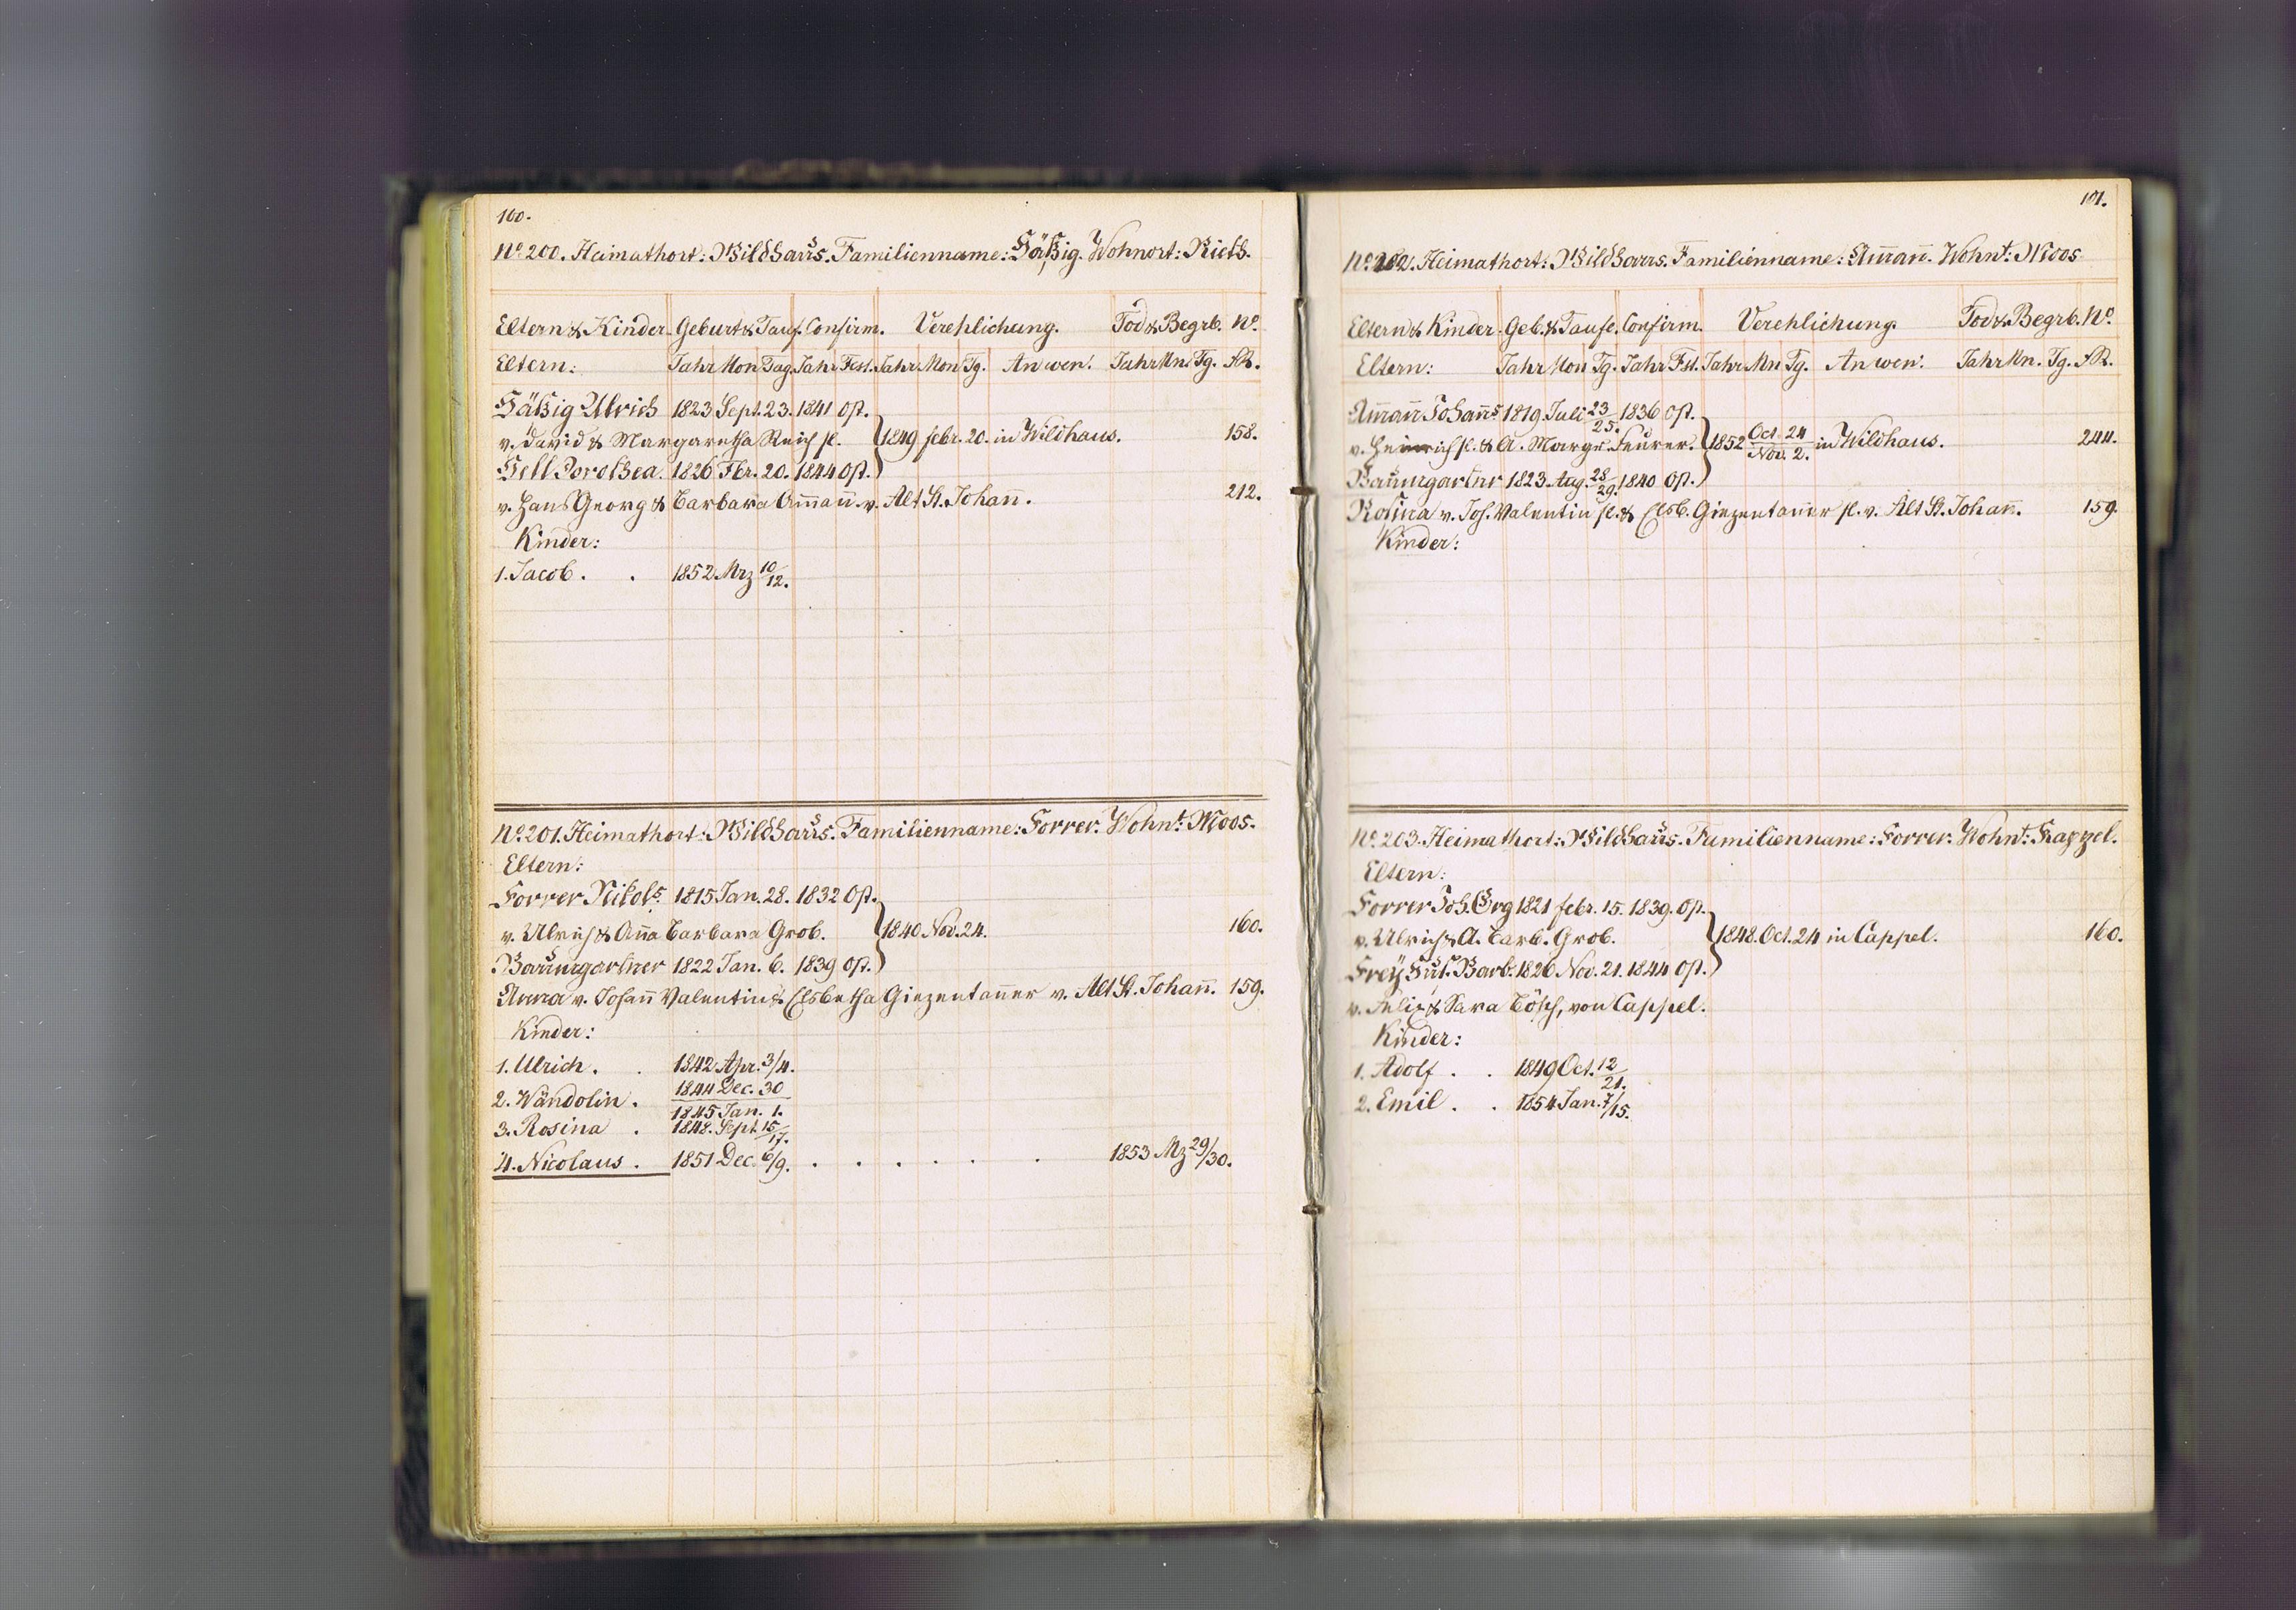 100.
No. 200. Heimathort: Wildhaus. Familienname: Häßig. Wohnort: Rieth.
Eltern & Kinder. Geburt & Tauf. Confirm. Verehlichung. Tod & Begrb. No.
Eltern: Jahr Mon Tag. Jahr Fest. Jahr Mon Tg. An wen? Jahr Mn. Tg. FR.
Häßig Ulrich 1823 Sept. 23. 1841 Ost.
v. David & Margaretha Reich sl. 1849 febr. 20. in Wildhaus. 158.
Hell Dorothea. 1826 Fbr. 20. 1844 Ost.
v. Hans Georg & Barbara Am̅an̅ v. Alt St. Johan̅. 212.
Kinder:
1. Jacob. . 1852 Mrz 10/12.
No. 201. Heimathort: Wildhaus. Familienname: Forrer. Wohnt: Moos.
Eltern:
Forrer Nikols. 1815 Jan. 28. 1832 Ost.
v. Ulrich & An̅a Barbara Grob. 1840 Nov. 24. 160.
Baumgartner 1822 Jan. 6. 1839 Ost.
Anna v. Johan̅ Valentin & Elsbetha Giezentan̅er v. Alt St. Johan̅. 159.
Kinder:
1. Ulrich. . 1842 Apr. 3/4.
2. Wändolin. 1844 Dec. 30
1845 Jan. 1.
3. Rosina . 1848. Sept. 15/17.
4. Nicolaus. 1851 Dec. 6/9. . . . . . . 1853 Mz 29/30.
101.
No. 202. Heimathort: Wildhaus. Familienname: Am̅an̅. Wohnt: Moos
Eltern & Kinder. Geb. & Taufe. Confirm. Verehlichung. Tod & Begrb. No.
Eltern: Jahr Mon Tg. Jahr Fst. Jahr Mn Tg. An wen? Jahr Mn. Tg. FR.
Am̅an̅ Johan̅s 1819. Juli 23/25. 1836 Ost.
v. Heinrich sl. & A. Margr. Feurer. 1852 Oct. 24/Nov. 2. in Wildhaus. 244.
Baumgartnr 1823 Aug. 28/29. 1840 Ost.
Rosina v. Joh. Valentin sl. & Elsb. Giezentan̅er sl. v. Alt St. Johan̅. 159.
Kinder:
No. 203. Heimathort: Wildhaus. Familienname: Forrer. Wohnt: Kappel.
Eltern:
Forrer Joh. Grg 1821 febr. 15. 1839. Ost.
v. Ulrich & A. Barb. Grob. 1848. Oct. 24 in Cappel. 160.
Freÿ Sus. Barb. 1826 Nov. 21. 1844 Ost.
v. Felix & Sara Bösch, von Cappel.
Kinder:
1. Adolf . . 1849 Oct. 12/21.
2. Emil . . 1854 Jan. 7/15.